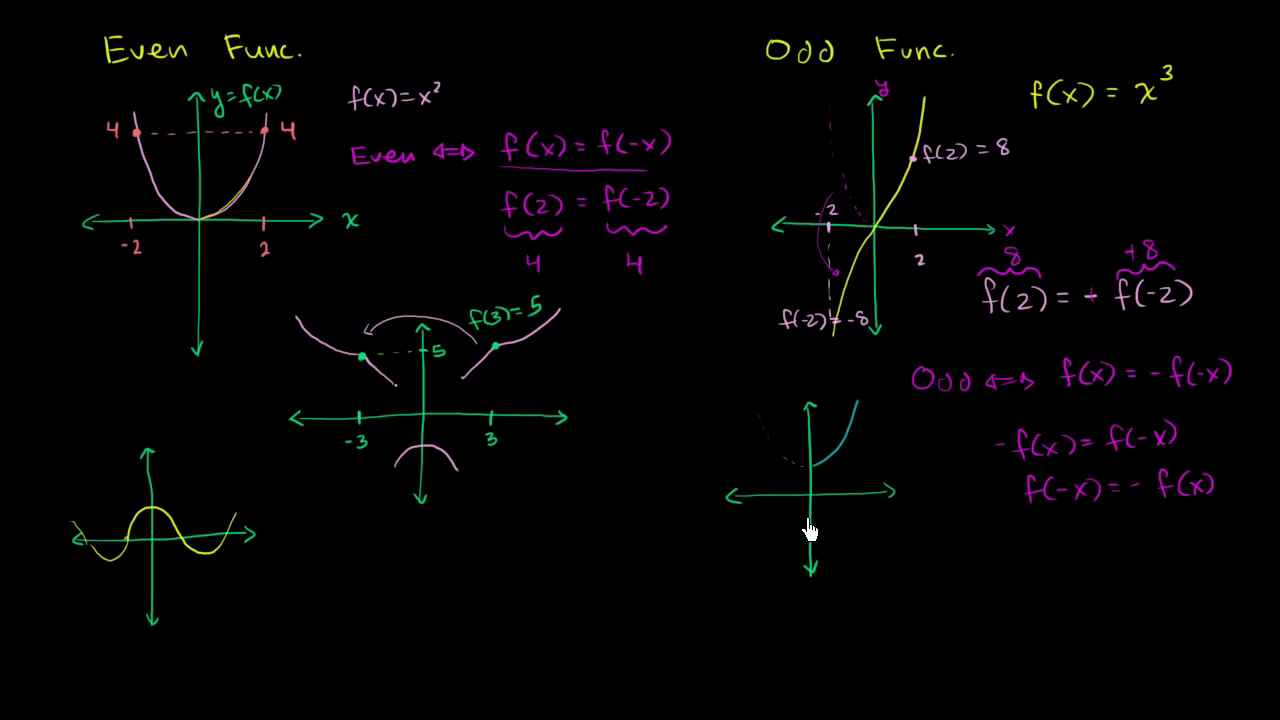 Even Func.
y=f(x)
4
4
-2
2
x
f(x)=x²
Even ⟺ f(x) = f(-x)
f(2) = f(-2)
4
4
f(3)=5
5
-3
3
Odd Func.
f(x) = x³
y
f(2) = 8
-2
x
2
f(-2)=-8
8
+8
f(2) = + f(-2)
Odd ⟺ f(x) = -f(-x)
-f(x) = f(-x)
f(-x) = - f(x)